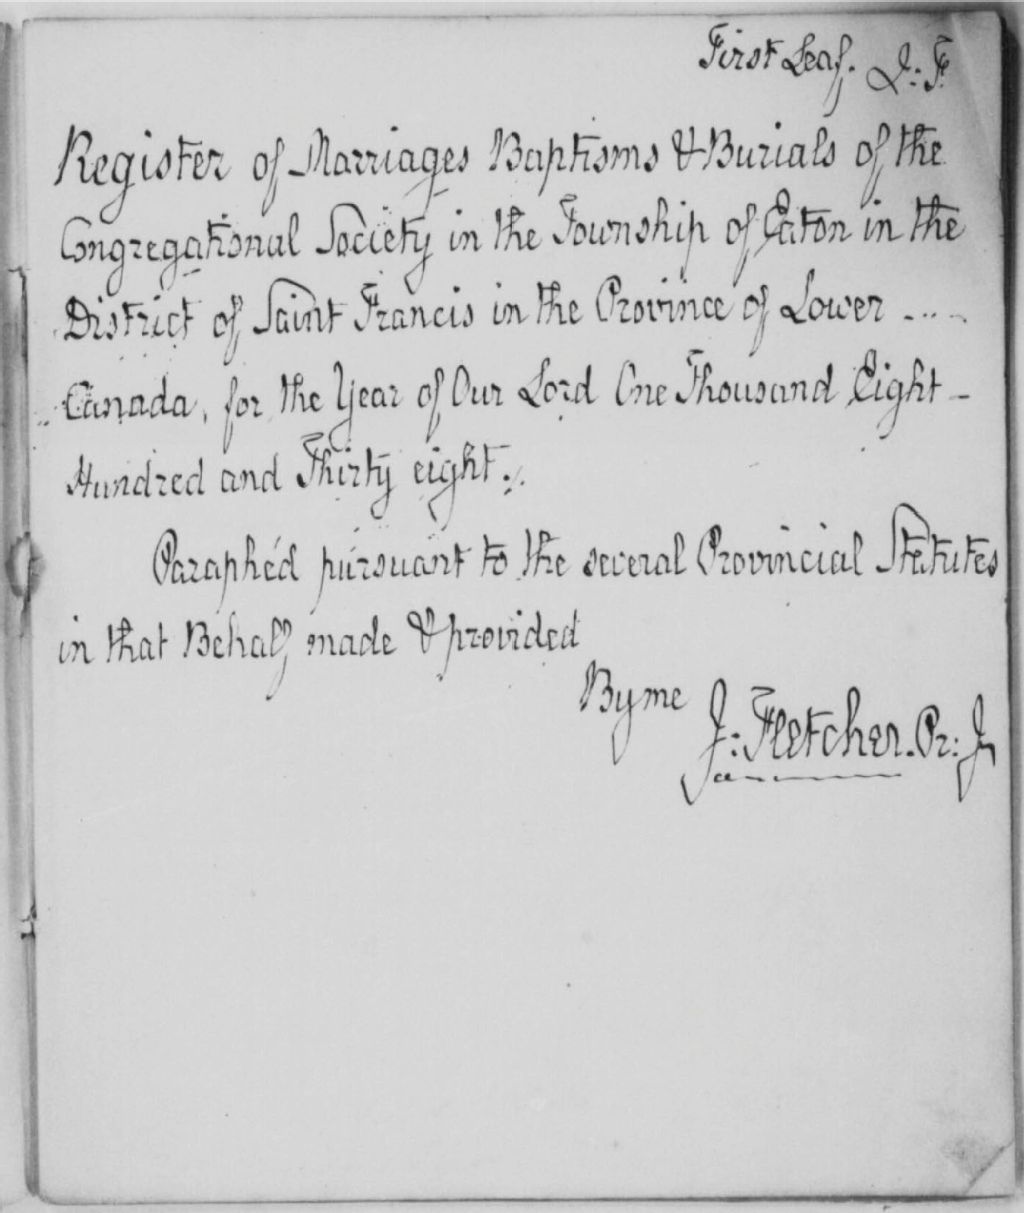 First Leaf. J: F.
Register of Marriages Baptisms & Burials of the
Congregational Society in the Township of Eaton in the
District of Saint Francis in the Province of Lower ....
Canada, for the Year of Our Lord One Thousand Eight -
Hundred and Thirty eight.
Paraphe'd pursuant to the several Provincial Statutes
in that Behalf made & provided
By me
J: Fletcher. Pr: J